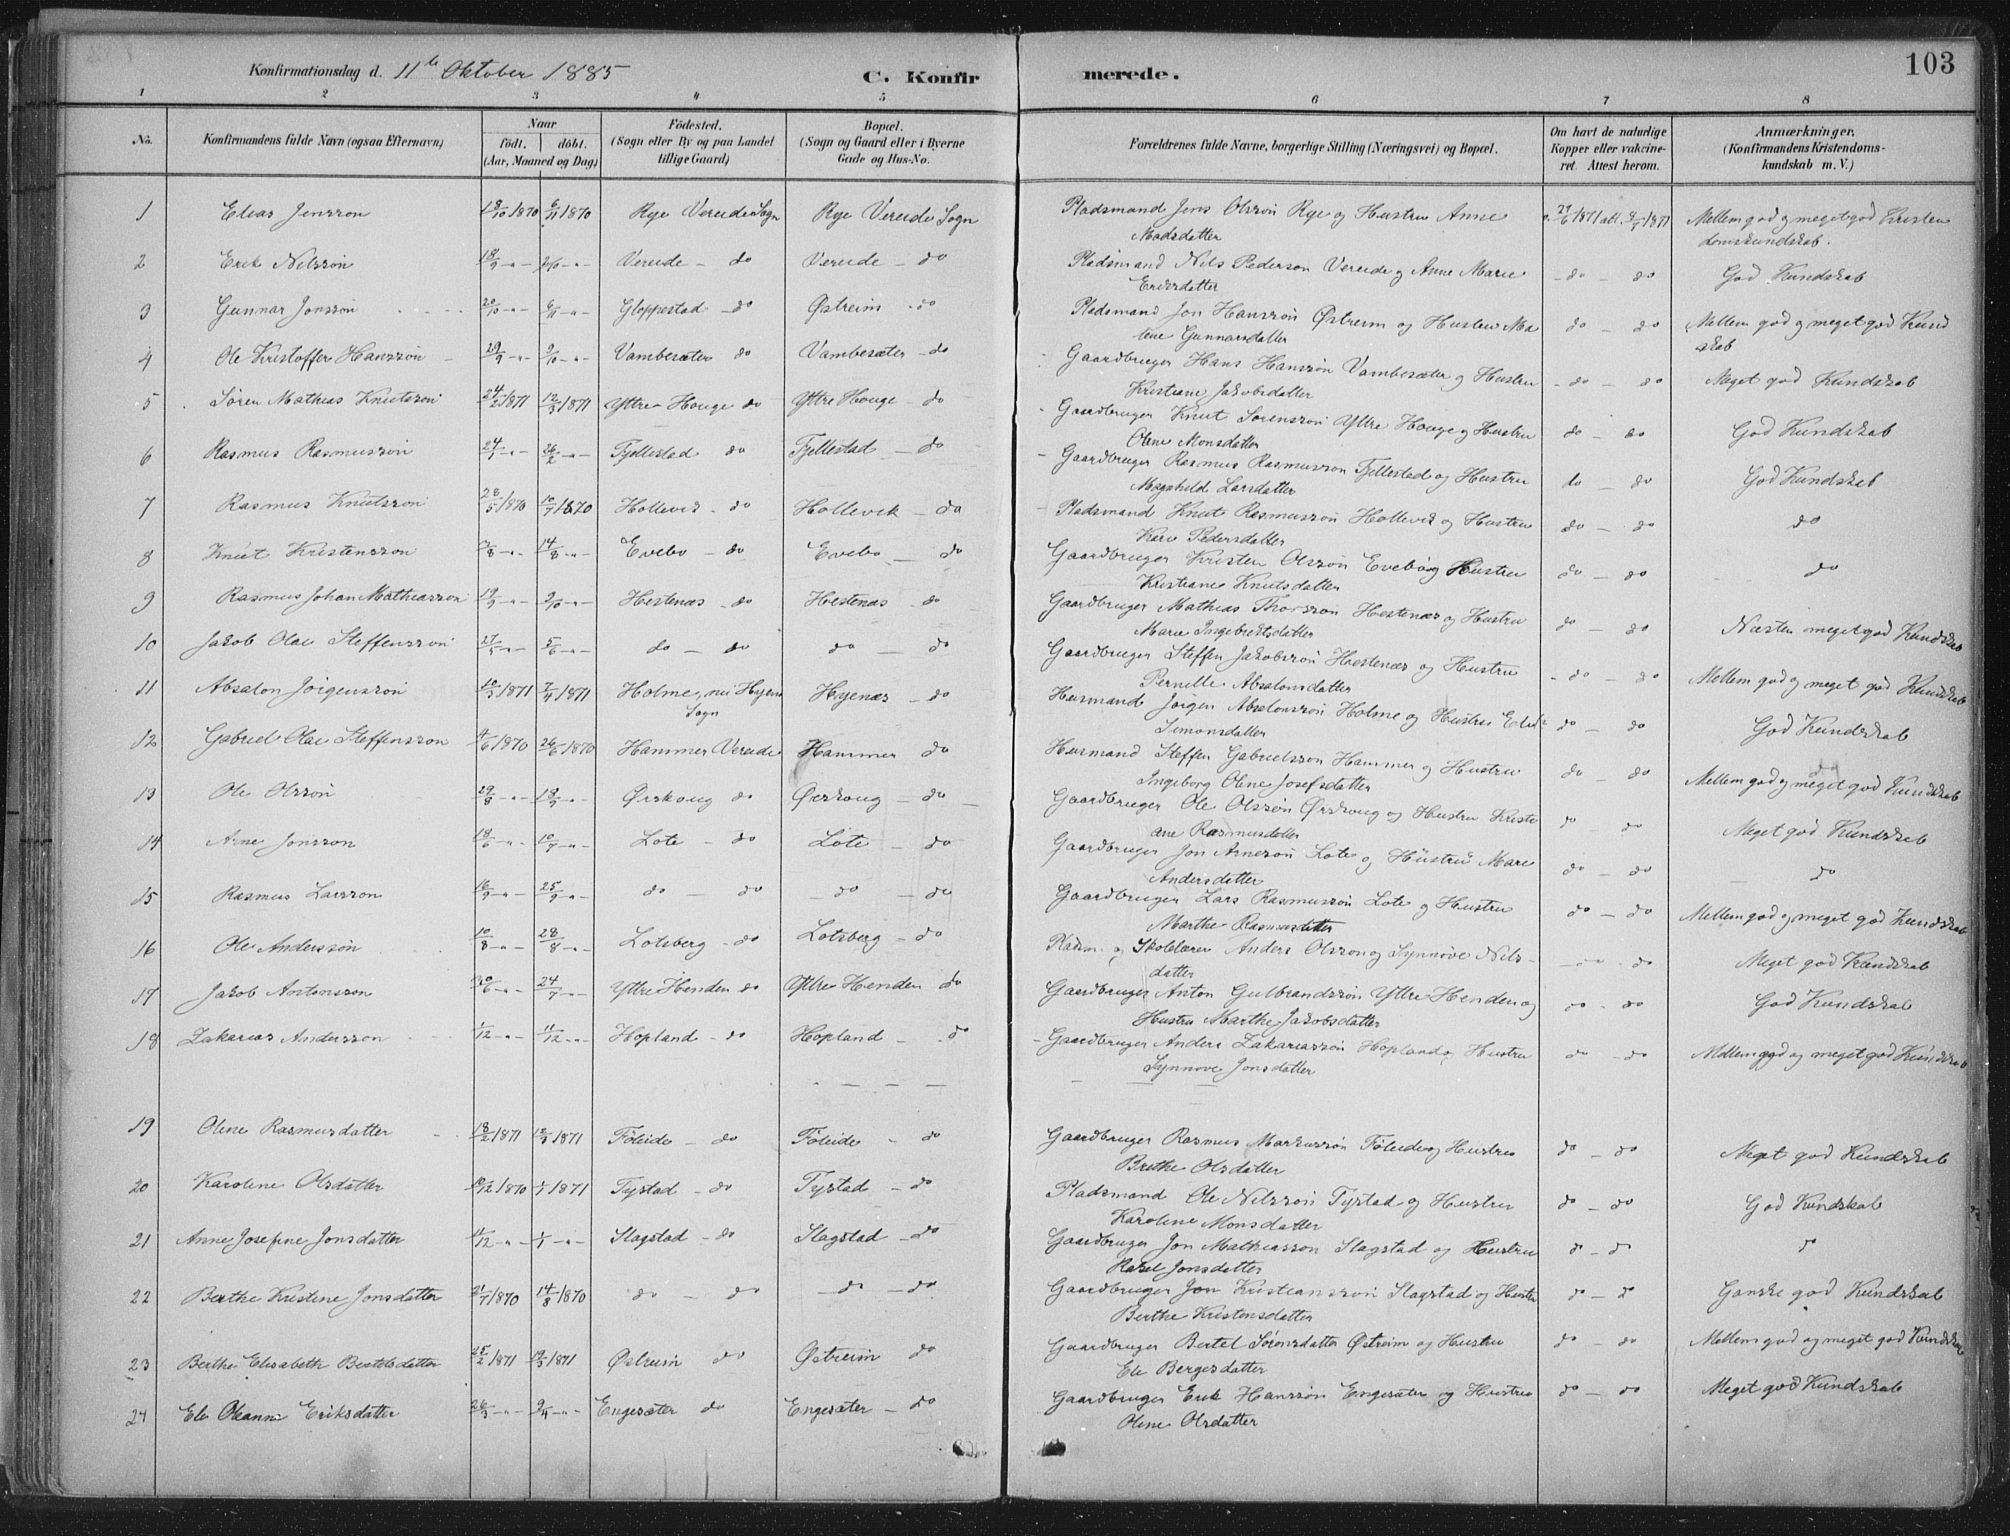 103
Konfirmationsdag d. 11te Oktober 1885 C. Konfirmerede.
1 2 3 4 5 6 7 8
No. Konfirmandens fulde Navn (ogsaa Efternavn) Naar født. døbt. (Aar, Maaned og Dag) Fødested. (Sogn eller By og paa Landet tillige Gaard) Bopæl. (Sogn og Gaard eller i Byerne Gade og Hus-No. Forældrenes fulde Navne, borgerlige Stilling (Næringsvei) og Bopæl. Om havt de naturlige Kopper eller vakcineret. Attest herom. Anmærkninger, (Konfirmandens Kristendomskundskab m. V.)
1 Elias Jensson 18/10 1870 6/11 1870 Rye Vereide Sogn Rye Vereide Sogn Pladsmand Jens Olsson Rye og Hustru Anne Madsdatter v. 29/6 1871 att. 1871 Mellem god og meget god Kristendomskundskab.
2 Erik Nilsson 18/9 -"- 2/10 -"- Vereide - do Vereide - do Pladsmand Nils Pederson Vereide og Anne Marie Eriksdatter - do - do God Kundskab
3 Gunnar Jonsson 20/10 -"- 6/11 -"- Gloppestad - do Østreim - do Pladsmand Jon Hansson Østreim og Hustru Malene Gunnarsdatter do - do Mellem god og meget god Kundskab
4 Ole Kristoffer Hansson 29/9 -"- 9/10 -"- Vambesæter do Vambesæter - do Gaardbruger Hans Hansson Vambesæter og Hustru Kristiane Jakobsdatter - do - do Meget god Kundskab
5 Søren Mathias Knutsson 24/2 1871 12/3 1871 Yttre Houge do Yttre Houge - do Gaardbruger Knut Sørensson Yttre Houge og Hustru Oline Monsdatter do - do God Kundskab
6 Rasmus Rasmusson 24/1 -"- 26/2 -"- Fjellestad do Fjellestad - do Gaardbruger Rasmus Rasmusson Fjellestad og Hustru Magnhild Larsdatter do - do God Kundskab
7 Rasmus Knutsson 28/5 1870 10/7 1870 Hollevik - do Hollevik - do Pladsmand Knut Rasmusson Hollevik og Hustru Kari Pedersdatter do - do do
8 Knut Kristensson /8 -"- 14/8 -"- Evebø - do Evebø - do Gaardbruger Kristen Olsson Evebø og Hustru Kristiane Knutsdatter do - do do
9 Rasmus Johan Mathiasson 19/9 -"- 9/10 -"- Hestenæs - do Hestenæs - do Gaardbruger Mathias Thorsson Hestenæs og Hustru Marie Ingebretsdatter do - do Næsten meget god Kundskab
10 Jakob Olai Steffensson 27/5 -"- 5/6 -"- do - do do - do Gaardbruger Steffen Jakobsson Hestenæs og Hustru Pernille Absalonsdatter - do - do Mellem god og meget god Kundskab
11 Absalon Jørgensson 10/3 1871 7/4 1871 Holme, nu Hyens Sogn Hyenæs - do Husmand Jørgen Absalonsson Holme og Hustru Eli Simonsdatter do - do God Kundskab
12 Gabriel Olai Steffensson 4/6 1870 26/6 1870 Hammer Vereide Hammer do Husmand Steffen Gabrielsson Hammer og Hustru Ingeborg Oline Josefsdatter do - do Mellem god og meget god Kundskab
13 Ole Olsson 29/8 -"- 18/9 -"- Ørskoug do Ørskoug - do Gaardbruger Ole Olsson Ørskoug og Hustru Kristiane Rasmusdatter do - do Meget god Kundskab
14 Arne Jonsson 18/6 -"- 10/7 -"- Lote - do Lote - do Gaardbruger Jon Arnesson Lote og Hustru Mari Andersdatter do - do do
15 Rasmus Larsson 16/9 -"- 25/9 -"- do - do do - do Gaardbruger Lars Rasmusson Lote og Hustru Marthe Rasmusdatter do - do Mellem god og meget god Kundskab
16 Ole Andersson 10/8 -"- 28/8 -"- Lotsberg - do Lotsberg - do Pladsm. og Skolelærer Anders Olsson og Synnøve Nilsdatter - do - do Meget god Kundskab
17 Jakob Antonsson 30/6 -"- 24/7 -"- Yttre Henden do Yttre Henden do Gaardbruger Anton Gulbrandsson Yttre Henden og Hustru Marthe Jakobsdatter do - do God Kundskab
18 Zakarias Andersson 1/12 -"- 11/12 -"- Hopland - do Hopland - do Gaardbruger Anders Zakariasson Hopland og Hustru Synnøve Jonsdatter do - do Mellem god og meget god Kundskab
19 Oline Rasmusdatter 18/2 1871 12/3 1871 Føleide - do Føleide - do Gaardbruger Rasmus Markusson Føleide og Hustru Brithe Olsdatter do - do Meget god Kundskab
20 Karoline Olsdatter /12 1870 1/1 1871 Tystad - do Tystad - do Pladsmand Ole Nilsson Tystad og Hustru Karoline Monsdatter do - do God Kundskab
21 Anne Josefine Jonsdatter 4/12 -"- 1/1 -"- Slagstad - do Slagstad - do Gaardbruger Jon Mathiasson Slagstad og Hustru Rasel Jonsdatter do - do do
22 Berthe Kristine Jonsdatter 21/7 1870 14/8 1870 do - do do - do Gaardbruger Jon Kristiansson Slagstad og Hustru Berthe Kristensdatter do - do Ganske god Kundskab
23 Berthe Elisabeth Bertelsdatter 25/2 1871 19/3 1871 Østreim do Østreim do Gaardbruger Bertel Sørensdatter Østreim og Hustru Eli Bergesdatter do - do Mellem god og meget god Kundskab
24 Eli Oleanna Eriksdatter 26/3 -"- 9/4 -"- Engesæter do Engesæter - do Gaardbruger Erik Hansson Engesæter og Hustru Oline Olsdatter do - do Meget god Kundskab